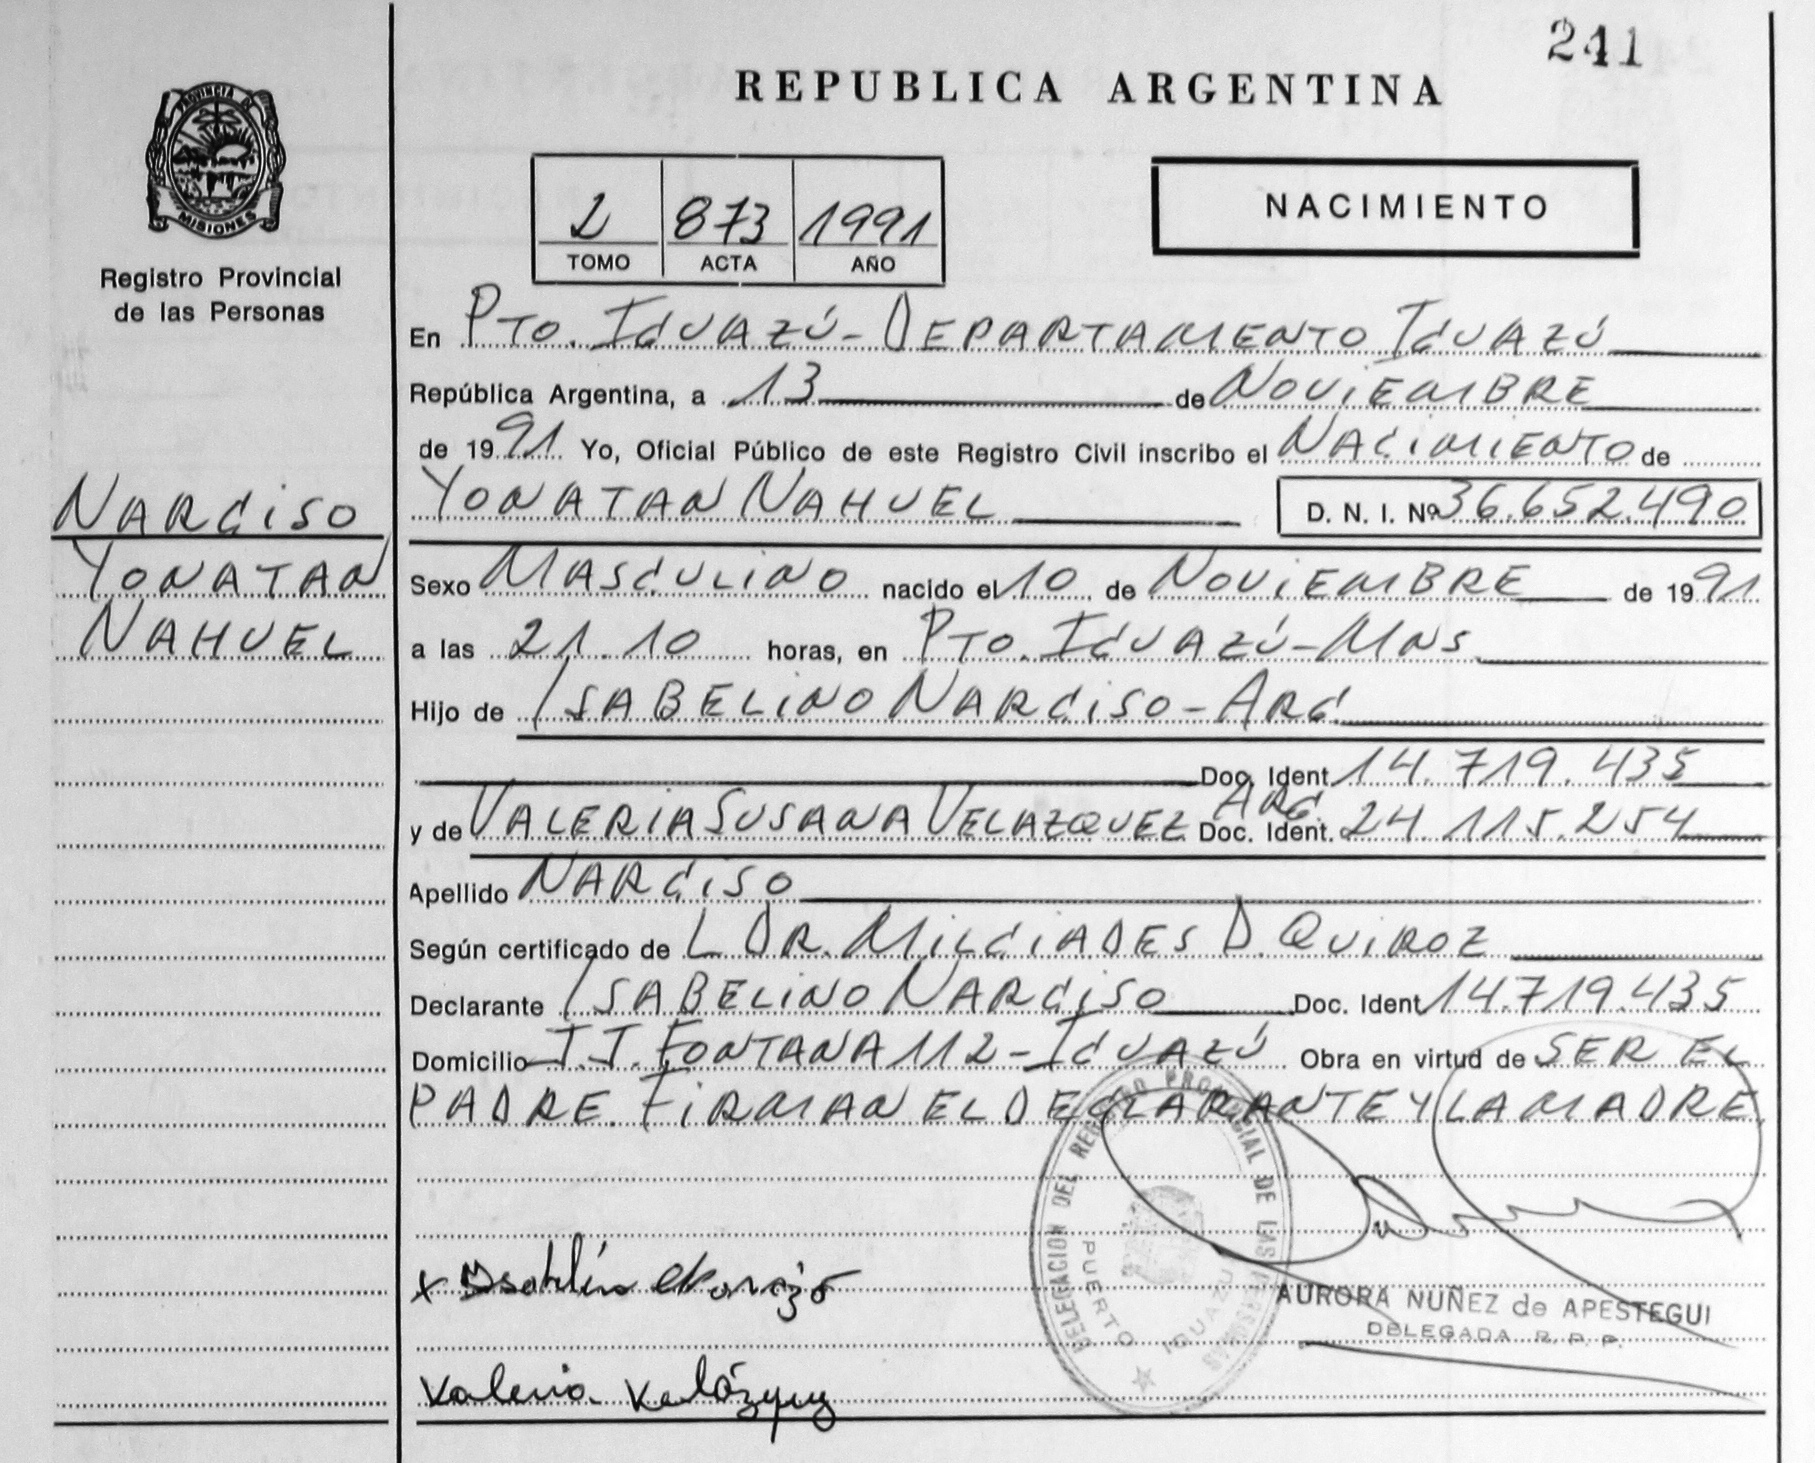 241
REPUBLICA ARGENTINA
PROVINCIA DE
MISIONES
Registro Provincial
de las Personas
2 873 1991
TOMO ACTA AÑO
NACIMIENTO
En PTO. IGUAZÚ - DEPARTAMENTO IGUAZÚ
República Argentina, a 13 de NOVIEMBRE
de 1991 Yo, Oficial Público de este Registro Civil inscribo el NACIMIENTO de
YONATAN NAHUEL D. N. I. Nº 36.652.490
NARCISO
YONATAN
NAHUEL
Sexo MASCULINO nacido el 10 de NOVIEMBRE de 1991
a las 21.10 horas, en PTO. IGUAZÚ - MNS.
Hijo de ISABELINO NARCISO - ARG
Doc. Ident 14.719.435
y de VALERIA SUSANA VELAZQUEZ ARG. Doc. Ident. 24.115.254
Apellido NARCISO
Según certificado de L DR. MILCIADES D. QUIROZ
Declarante ISABELINO NARCISO Doc. Ident 14.719.435
Domicilio J.J. FONTANA 112 - IGUAZÚ Obra en virtud de SER EL
PADRE. FIRMAN EL DECLARANTE Y LA MADRE
DELEGACION DEL REGISTRO PROVINCIAL DE LAS PERSONAS
PUERTO IGUAZU
AURORA NUÑEZ de APESTEGUI
DELEGADA R. P. P.
Valeria Velázquez